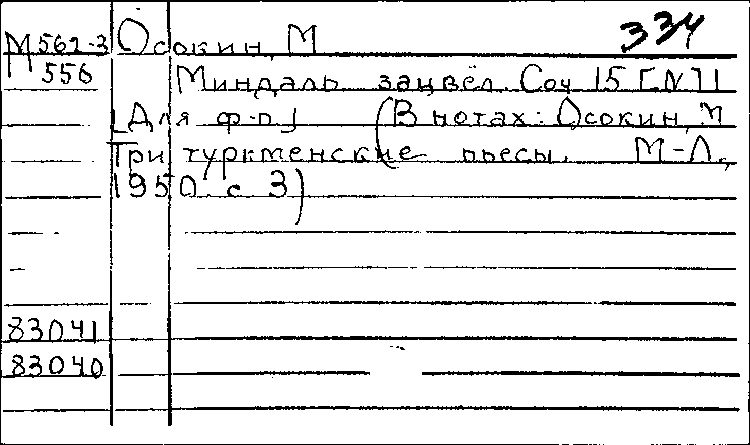 М 562-3 Осокин, М 334
556 Миндаль зацвёл. Соч 15 [N]1
[Для ф-п.] (В нотах: Осокин, М
Три туркменские пьесы. М-Л.,
1950. с 3)
83041
83040